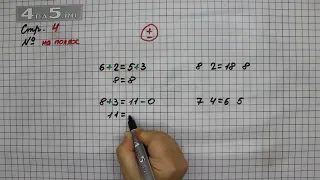 4на5.ru
Стр. 4
№ на полях
+
−
6+2=5+3
8=8
8 2=18 8
8+3=11-0
11=
7 4=6 5